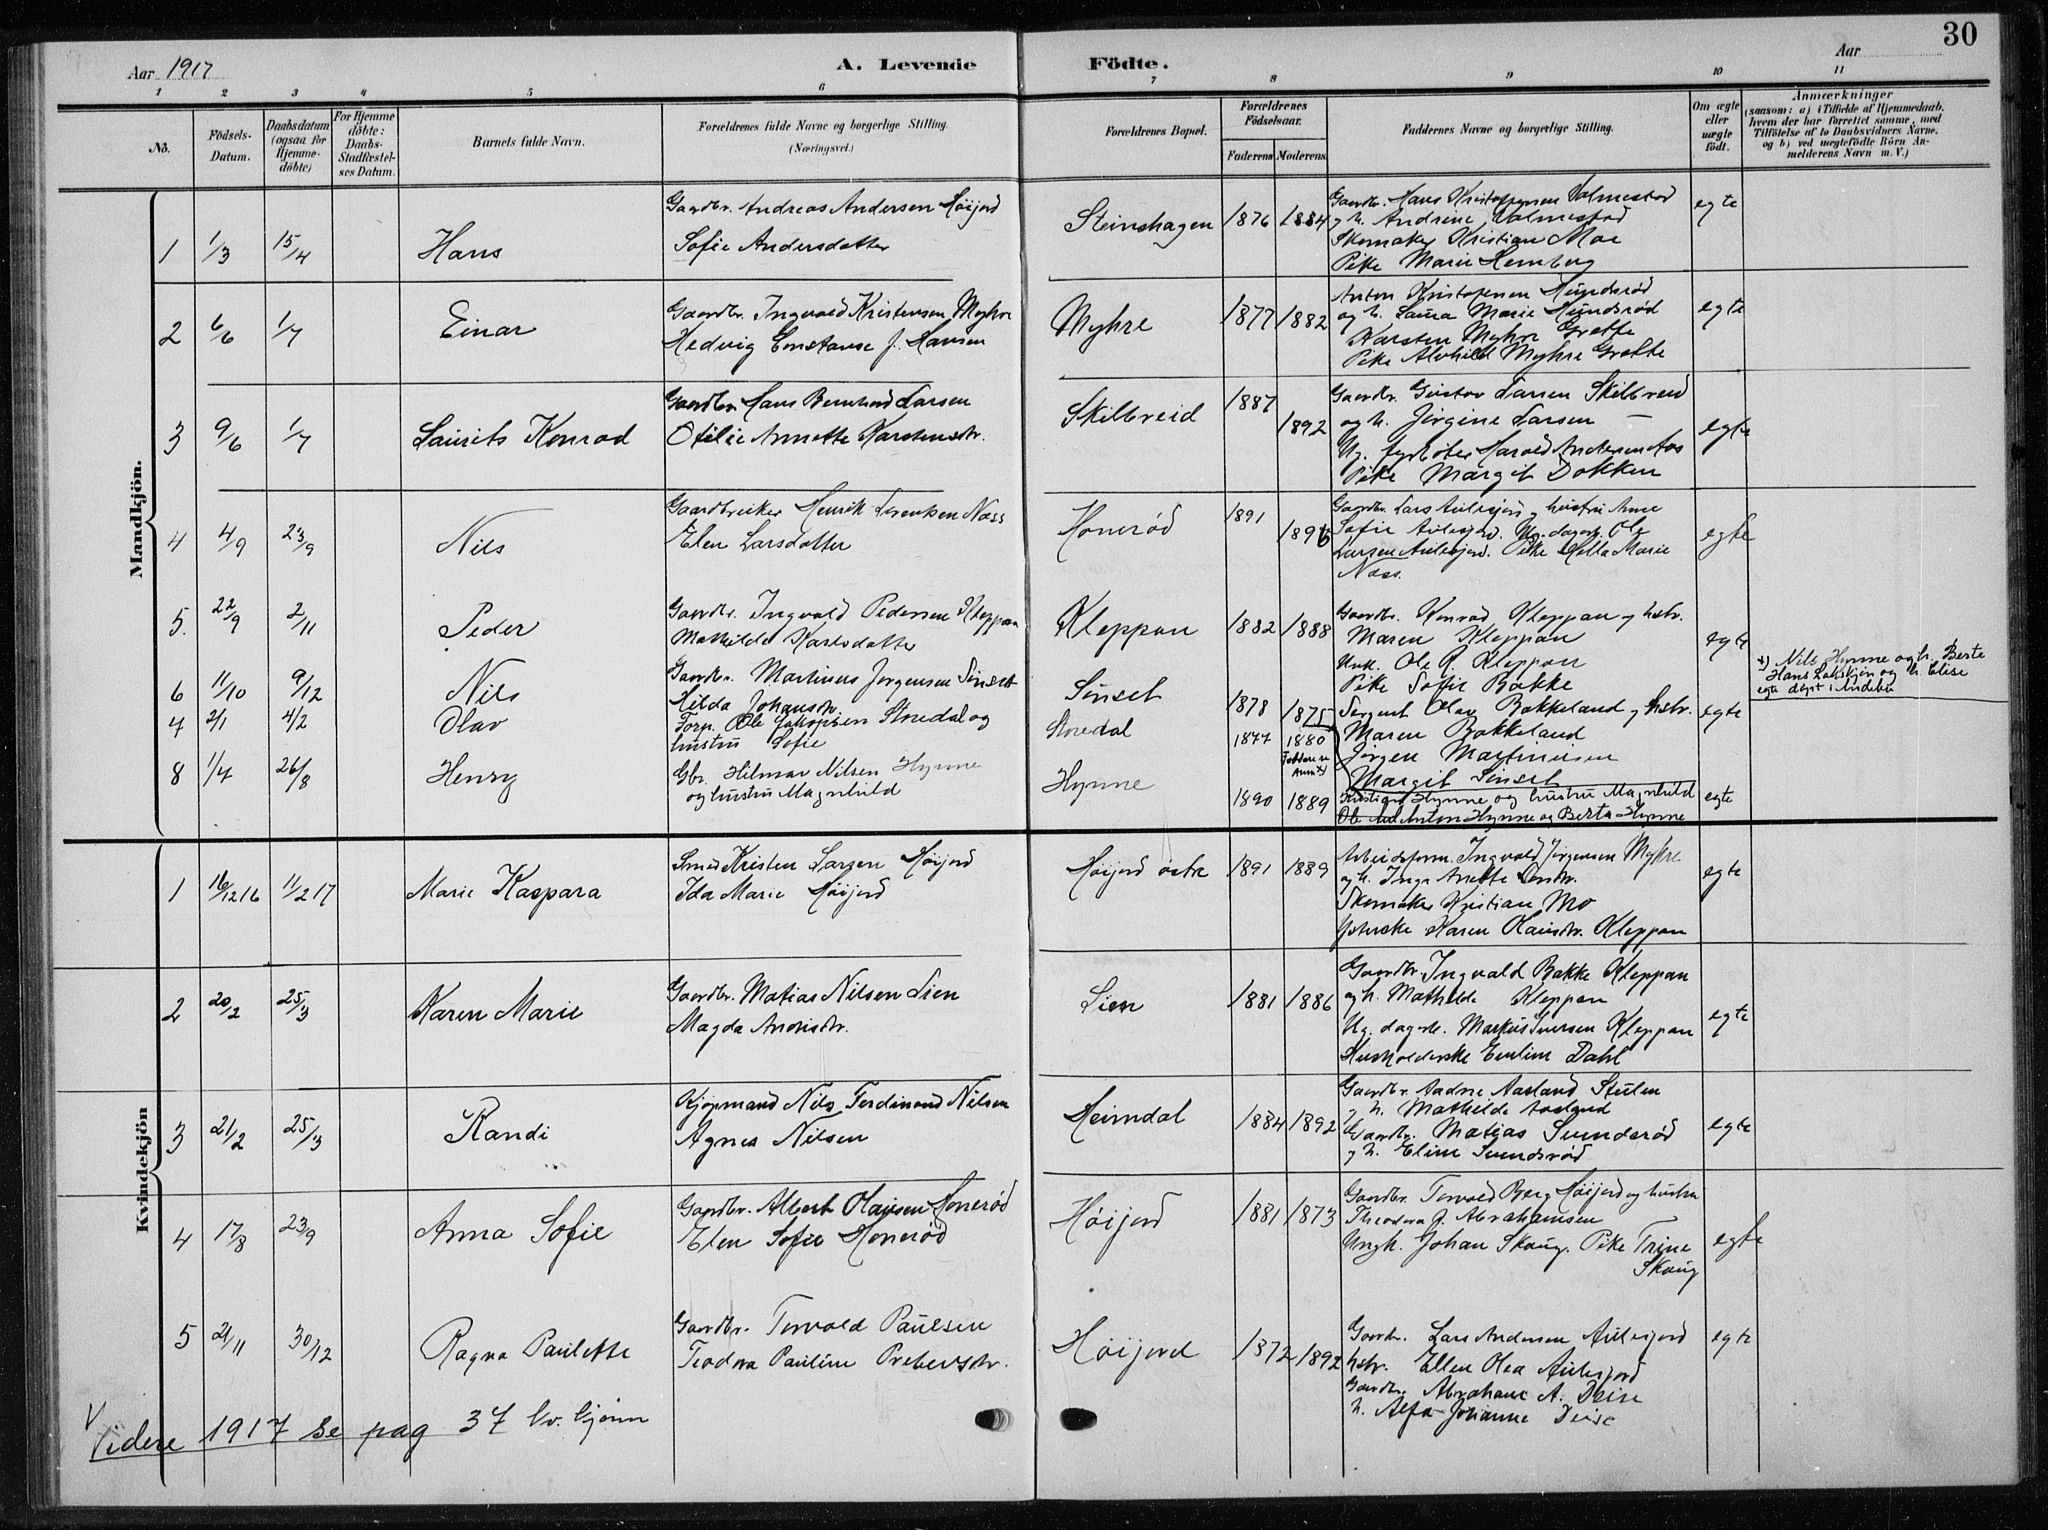 Aar 1917
A. Levende
Födte.
Aar
30
1 2 3 4 5 6 7 8 9 10 11
Nô.
Födsels-
Datum.
Daabsdatum
(ogsaa for
Hjemme-
døbte)
For Hjemme
døbte:
Daabs-
Stadfæstel-
ses Datum.
Barnets fulde Navn.
Forældrenes fulde Navne og borgerlige Stilling.
(Næringsvei.)
Forældrenes Bopæl.
Forældrenes
Fødselsaar.
Faderens. Moderens.
Faddernes Navne og borgerlige Stilling.
Om ægte
eller
uægte
født.
Anmærkninger
(saasom: a) i Tilfælde af Hjemmedaab,
hvem der har forrettet samme, med
Tilföielse af to Daabsvidners Navne,
og b) ved uægtefödte Börn An-
melderens Navn m. V.)
Mandkjön.
1 1/3 15/4 Hans
Gaardbr. Andreas Andersen Höijord
Sofie Andersdatter
Steinshagen 1876 1884
Gaardbr. Hans Kristofersen Valmestad
og h. Andrine Valmestad
Skomaker Kristian Moe
Pike Marie Hemberg
egte
2 6/6 1/7 Einar
Gaardbr. Ingvald Kristensen Myhre
Hedvig Constanse f. Hansen
Myhre 1877 1882
Anton Kristofersen Hundsrød
og h. Laura Marie Hundsrød
Karsten Myhre Grette
Pike Alvhild Myhre Grette
egte
3 9/6 1/7 Laurits Konrad
Gaardbr. Hans Bernhard Larsen
Otilie Annette Karstensdtr.
Skilbreid 1887 1892
Gaardbr. Gustav Larsen Skilbreid
og h. Jörgine Larsen —
Ug. fyrbøter Harald Andersen Aas
Pike Margit Dokken
egte
4 4/9 23/9 Nils
Gaardbruker Henrik Lorentsen Næss
Elen Larsdatter
Honerød 1891 1896
Gaardbr. Lars Aulesjord og hustru Anne
Sofie Aulesjord. Ug. dagarb. Ole
Larsen Aulesjord. Pike Marie
Næss.
egte
5. 22/9 2/11 Peder
Gaardbr. Ingvald Pedersen Kleppan
Mathilde Karlsdatter
Kleppan 1882 1888
Gaardbr. Konrad Kleppan og hstr.
Maren Kleppan
Unk. Ole P. Kleppan
Pike Sofie Bakke
egte
6 11/10 9/12 Nils
Gaardbr. Martinus Jørgensen Sönset
Hilda Johansdtr.
Sönset 1878 1875
Sergent Olav Bakkeland og hstr.
Maren Bakkeland
Jørgen Martinusen
Margit Sönset
egte
7 2/1 4/2 Olav
Forp. Ole Jakobsen Storedal og
hustru Sofie
Storedal 1877 1880
Faddere se
Anm x)
x) Nils Hynne og h. Berte
Hans Lakskjøn og h. Elise
egte døpt i Andebu
8 1/4 26/8 Henry
Gbr. Hilmar Nilsen Hynne
og hustru Magnhild
Hynne 1890 1889
Kristian Hynne og hustru Magnhild
Anton Hynne og Berta Hynne
egte
Kvindekjön
1 16/12 16 11/2 17 Marie Kaspara
Smed Kristen Larsen Höijord
Ida Marie Höijord
Höijord östre 1891 1889
Arbeidsform. Ingvald Jørgensen Myhre
og h. Inga Anette
Skomaker Kristian Mo
Ysterske Karen Olausdtr. Kleppan
egte
2 20/2 25/3 Karen Marie
Gaardbr. Matias Nilsen Lien
Magda Andrisdtr.
Lien 1881 1886
Gaardbr. Ingvald Bakke Kleppan
og h. Mathilde Kleppan
Ug. dagarb. Markus Iversen Kleppan
Husholderske Emline Dahl
egte
3 21/2 25/3 Randi
Kjøpmand Nils Ferdinand Nilsen
Agnes Nilsen
Heimdal 1884 1892
Gaardbr. Aadne Aasland Stulen
og h. Mathilde Aasland
Gaardbr. Matias Svindsrød
og h. Eline Svindsrød
egte
4 17/8 23/9 Anna Sofie
Gaardbr. Albert Olausen Honerød
Elen Sofie Honerød
Höijord 1881 1873
Gaardbr. Torvald Berg Höijord og hustru
Theodora f. Abrahamsen
Ungk. Johan Skaug. Pike Trine
Skaug
egte
5 21/11 30/12 Ragna Paulette
Gaardbr. Torvald Paulsen
Teodora Pauline Prebensdtr.
Höijord 1872 1892
Gaardbr. Lars Andersen Aulesjord
hstr. Ellen Olea Aulesjord
Gaardbr. Abraham A. Deise
h. Alfa Johanne Deise
egte
Videre 1917 se pag 37 kv. kjönn